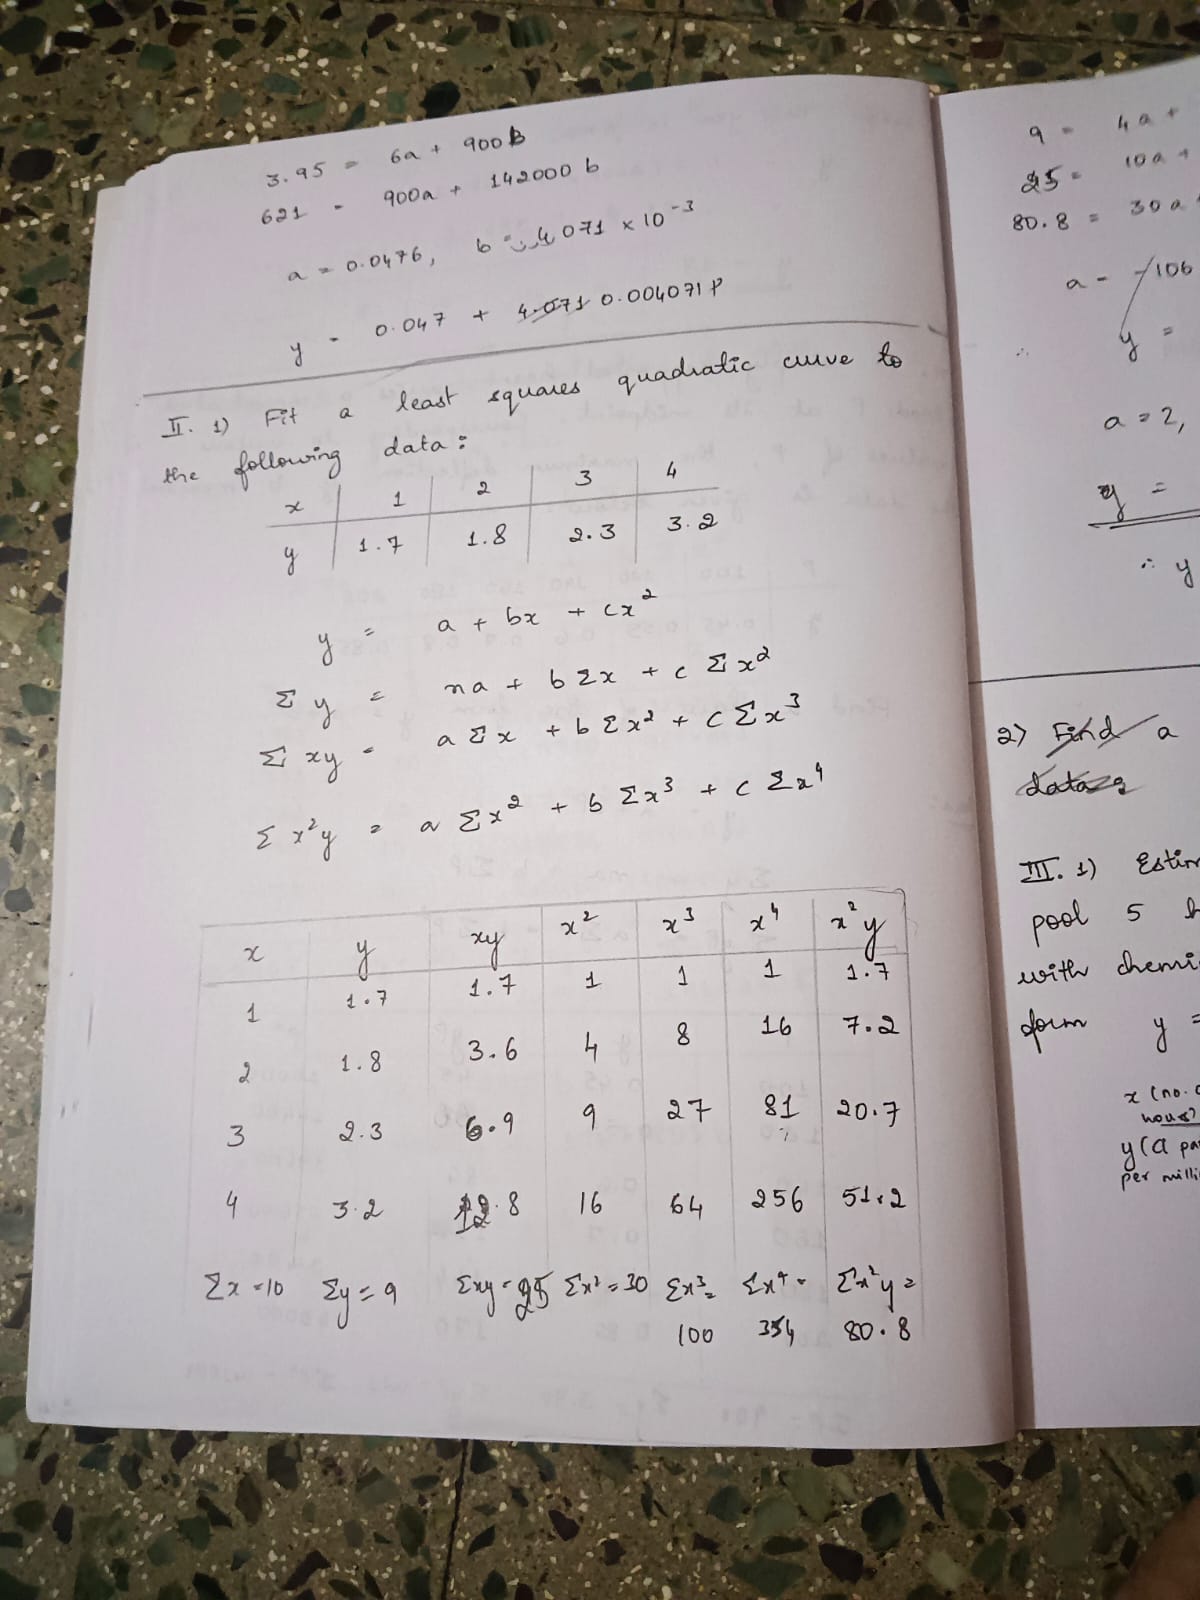 3.95 = 6a + 900b
621 = 900a + 142000 b
a = 0.0476, b = 4.071 × 10⁻³
y = 0.047 + 4.071 0.004071 P
II. 1) Fit a least squares quadratic curve to
the following data:
x 1 2 3 4
y 1.7 1.8 2.3 3.2
y = a + bx + cx²
Σ y = na + b Σx + c Σ x²
Σ xy = a Σ x + b Σ x² + c Σ x³
Σ x²y = a Σ x² + b Σ x³ + c Σ x⁴
x y xy x² x³ x⁴ x²y
1 1.7 1.7 1 1 1 1.7
2 1.8 3.6 4 8 16 7.2
3 2.3 6.9 9 27 81 20.7
4 3.2 12.8 16 64 256 51.2
Σx = 10 Σy = 9 Σxy = 25 Σx² = 30 Σx³ = Σx⁴ = Σx²y =
100 354 80.8
9 = 4a +
25 = 10a +
80.8 = 30a +
a = -106
∴ y =
a = 2,
y =
∴ y
2) Find a
data
III. 1) Estim
pool 5 h
with chemi
form y =
x (no. o
hours)
y (a pa
per milli